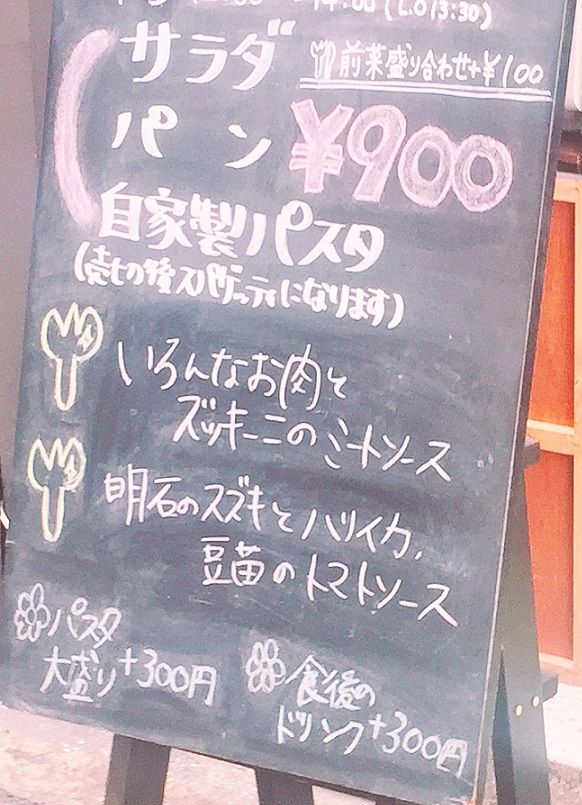 14:00 (L.O 13:30)
サラダ
前菜盛り合わせ+¥100
パン ¥900
自家製パスタ
(売切の後スパゲッティになります)
いろんなお肉と
ズッキーニのミートソース
明石のスズキとハリイカ,
豆苗のトマトソース
パスタ
大盛り+300円
食後の
ドリンク+300円